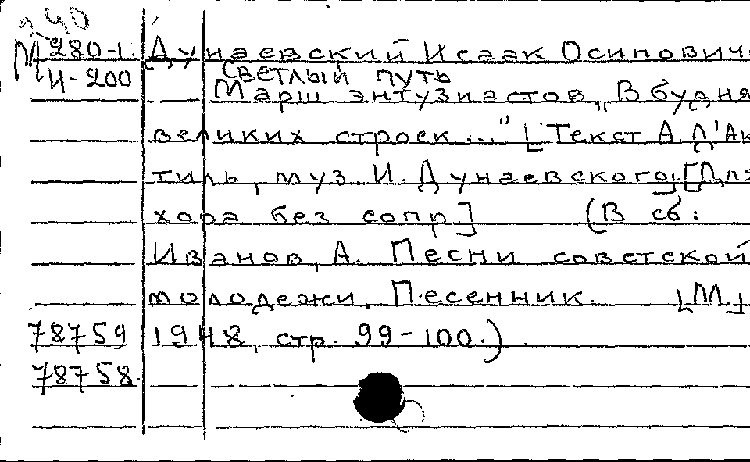 240
М 280-1. Дунаевский Исаак Осипович
И-200 Светлый путь
Марш энтузиастов, „В будня
великих строек..." [Текст А Д'Ак
тиль, муз. И. Дунаевского] [Для
хора без сопр] (В сб:
Иванов, А. Песни советской
молодежи. Песенник. [М.]
78759 1948, стр. 99-100.)
78758.